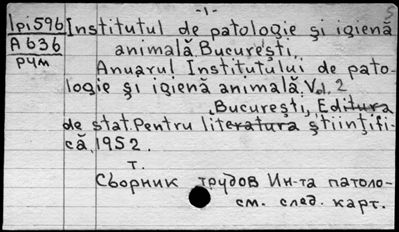 -1-
Ipi596 Institutul de patologie şi igienă
A636 animală. Bucureşti,
рум Anuarul Institutului de pato-
logie şi igienă animală. Vol. 2
Bucureşti, Editura
de stat Pentru literatura ştiinţifi-
că, 1952.
т.
Сборник трудов Ин-та патоло-
см. след. карт.